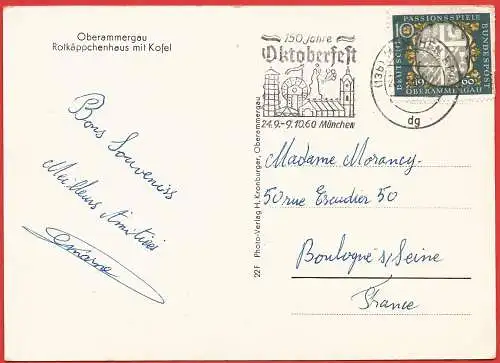 Oberammergau
Rotkäppchenhaus mit Kofel
Bons Souvenirs
Meilleurs Amitiés
22 F Photo-Verlag H. Kronburger, Oberammergau
150 Jahre
Oktoberfest
24.9.-9.10.60 München
(13b)
dg
10
PASSIONSSPIELE
DEUTSCHE
BUNDESPOST
19 60
OBERAMMERGAU
Madame Morancy
50 rue Escudier 50
Boulogne s/Seine
France